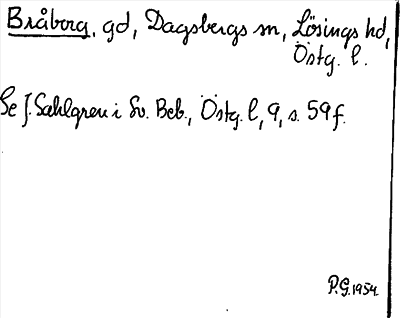 Bråborg, gd, Dagsbergs sn, Lösings hd,
Östg. l.
Se J. Sahlgren i Sv. Beb., Östg. l, 9, s. 59 f.
P.G. 1954.